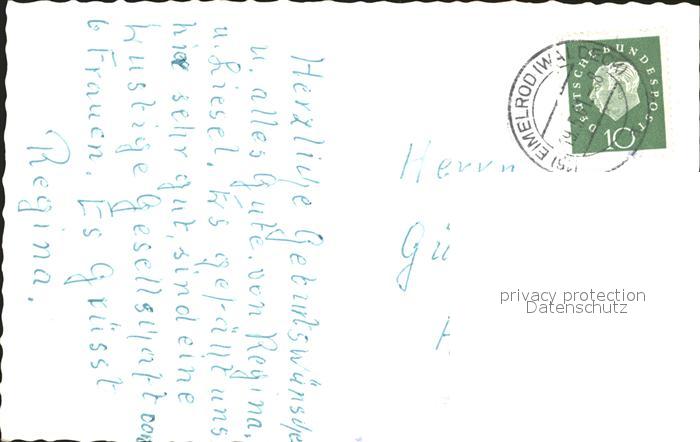 Herzliche Geburtswünsche
u. alles Gute, von Regina,
u. Liesel. Es gefällt uns
hier sehr gut, sind eine
lustige Gesellschaft von
6 Frauen. Es grüsst
Regina.
Herrn
Gü
DEUTSCHE BUNDESPOST
10
(16) EIMELROD (WALDECK)
privacy protection
Datenschutz